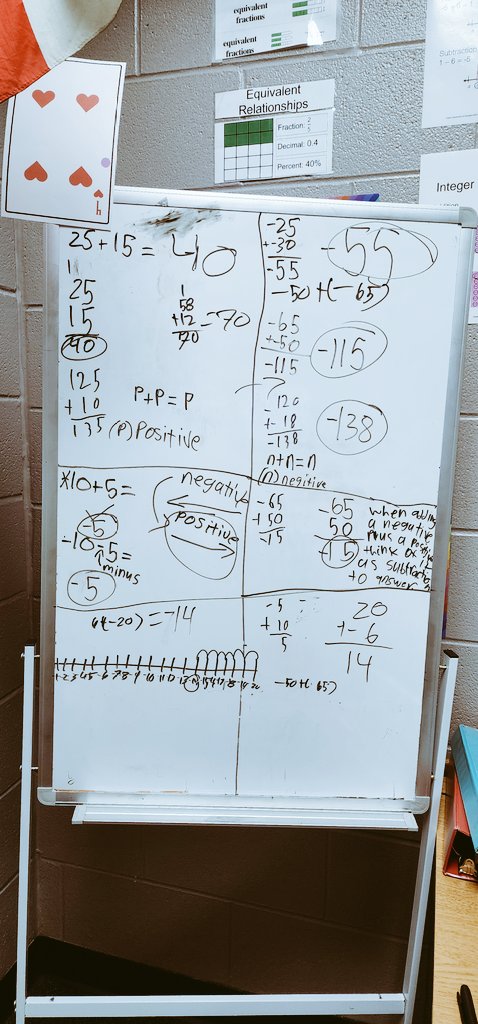 equivalent
fractions
equivalent
fractions
Equivalent
Relationships
Fraction: 2
5
Decimal: 0.4
Percent: 40%
Subtraction
1 - 6 = -5
Integer
4
25+15 = 40
1
25
15
40
1
58
+12 = 70
70
125
+10
135
P+P=P
(P) Positive
-25
+-30
-55
-55
-50+(-65)
-65
+-50
-115
-115
-120
+-18
-138
-138
n+n=n
(n) negitive
*10+5=
-5
-10-5=
minus
-5
negative
positive
-65
+50
-15
-65
50
-15
when adding
a negative
plus a positive
think of it
as subtraction
to answer
(-20) = -14
1 2 3 4 5 6 7 8 9 10 11 12 13 14 15 16 17 18 19 20
-5
+10
5
20
+-6
14
-50+(-65)